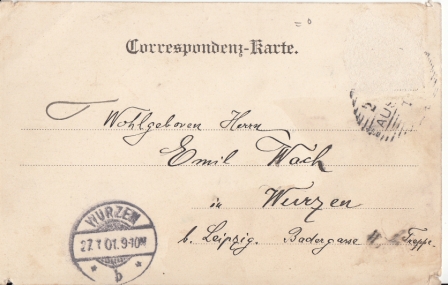 Correspondenz-Karte.
Wohlgeboren Herrn
Emil Wach
in Wurzen
b. Leipzig. Badergasse II Treppe
WURZEN
27.1 01. 9-10N
* b *
AUS